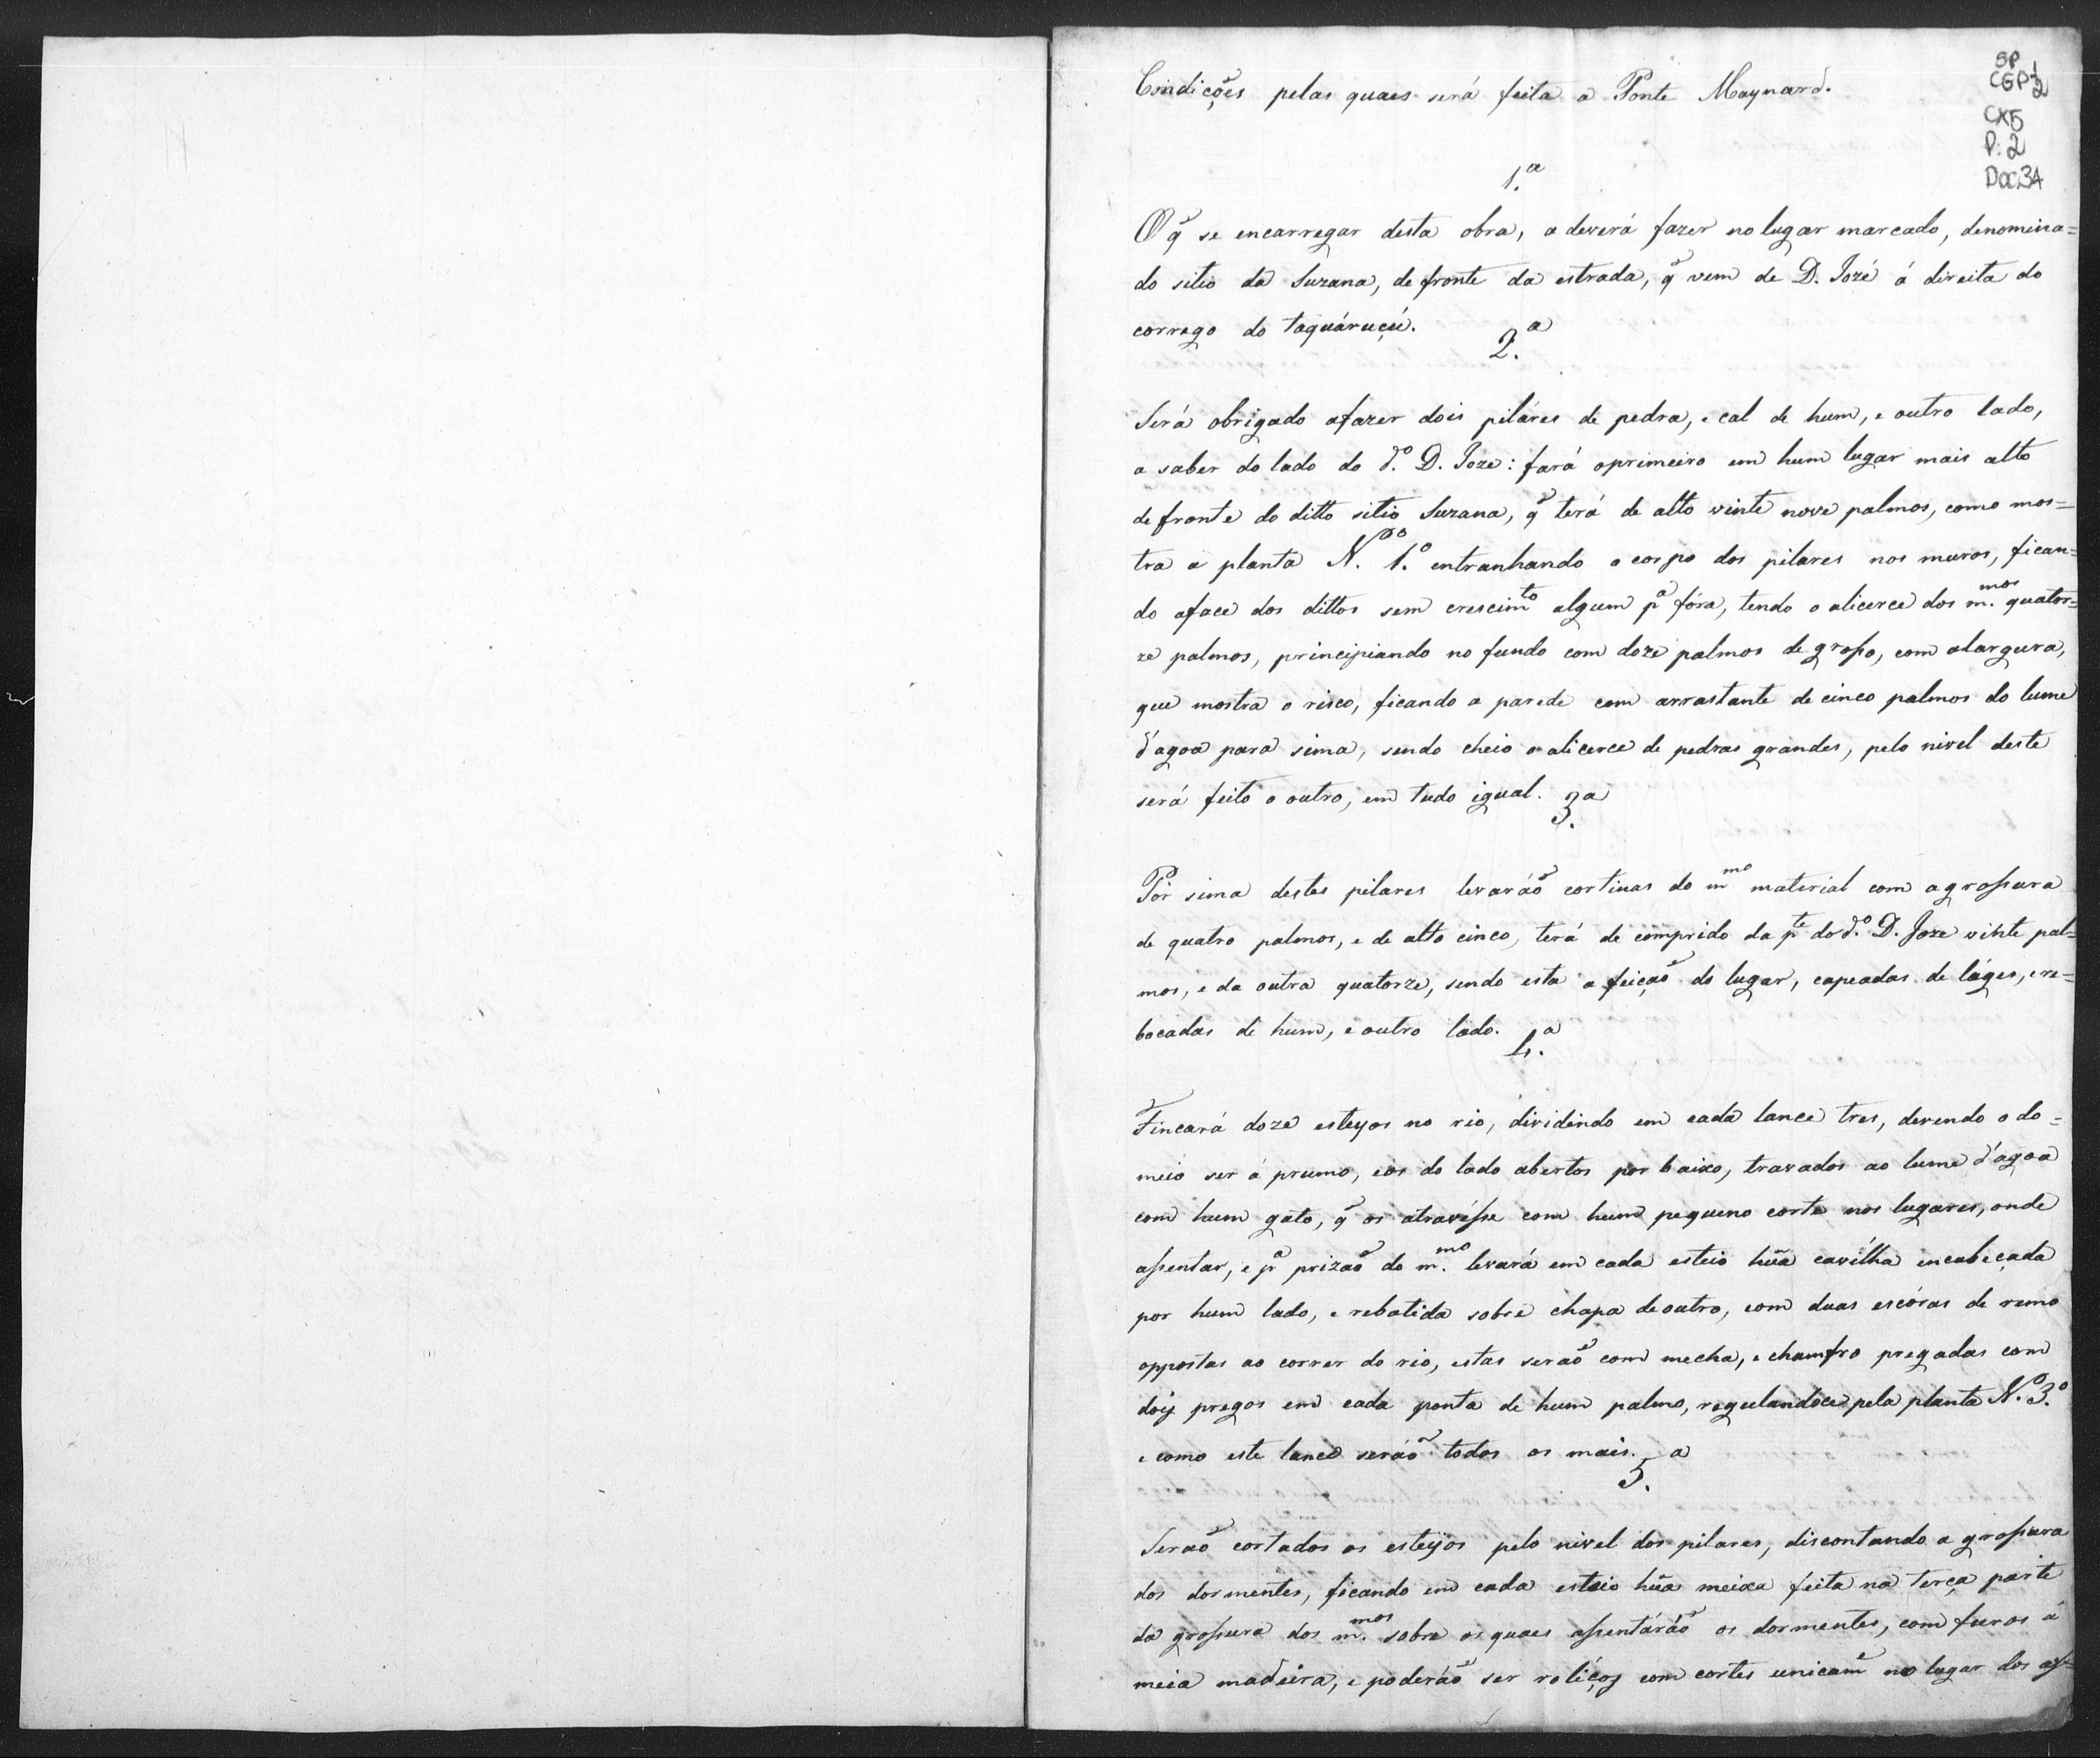 Condições pelas quaes será feita a Ponte Maynard.
SP
CGP 1/2
CX5
P: 2
Doc34
1.ª
O q̃ se encarregar desta obra, a deverá fazer no lugar marcado, denomina=
do sitio da Suzana, de fronte da estrada, q̃ vem de D. Jozé á direita do
corrego do taquáruçú.
2.ª
Será obrigado afazer dois piláres de pedra, e cal de hum, e outro lado,
a saber do lado do d.º D. Joze: fará oprimeiro em hum lugar mais alto
de fronte do ditto sitio Suzana, q̃ terá de alto vinte nove palmos, como mos=
tra a planta N.º 1.º entranhando o corpo dos pilares nos muros, fican=
do aface dos dittos sem crescimto algum pª fóra, tendo o alicerce dos m.mos quator=
ze palmos, principiando no fundo com doze palmos de grosso, com alargura,
que mostra o risco, ficando a parede com arrastante de cinco palmos do lume
d'agoa para sima, sendo cheio o alicerce de pedras grandes, pelo nivel deste
será feito o outro, em tudo igual.
3.ª
Por sima destes pilares levaráõ cortinas do mmo material com agrossura
de quatro palmos, e de alto cinco, terá de comprido da pte do d.º D. Joze vinte pal=
mos, e da outra quatorze, sendo esta a feiçaõ do lugar, capeadas de láges, e re=
bocadas de hum, e outro lado.
4.ª
Fincará doze esteyos no rio, dividindo em cada lance tres, devendo o do=
meio ser á prumo, eos do lado abertos por baixo, travados ao lume d'agoa
com hum gato, q̃ os atravésse com hum pequeno corte nos lugares, onde
assentar, e pª prizaõ do m.mo levará em cada esteio hũa cavilha encabeçada
por hum lado, e rebatida sobre chapa deoutro, com duas escóras de remo
oppostas ao correr do rio, estas seraõ com mecha, e chamfro pregadas com
dois pregos em cada ponta de hum palmo, regulandoce pela planta N.º 3.º
e como este lance seráõ todos os mais.
5.ª
Seraõ cortados os esteyos pelo nivel dos pilares, discontando a grossura
dos dormentes, ficando em cada esteio hũa meixa feita na terça parte
da grossura dos m.mos sobre os quaes assentáráõ os dormentes, com furos á
meia madeira, e poderáõ ser roliços com cortes unicamẽ no lugar dos as=